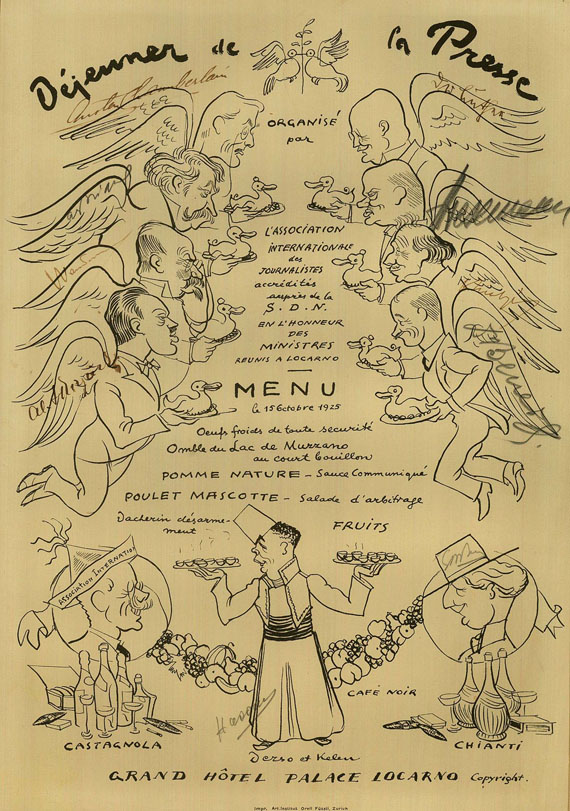 Déjeuner de la Presse
ORGANISÉ
par
L'ASSOCIATION
INTERNATIONALE
des
JOURNALISTES
accrédités
auprès de la
S. D. N.
EN L'HONNEUR
DES
MINISTRES
REUNIS A LOCARNO
MENU
le 15 Octobre 1925
Oeufs froids de toute securité
Omble du Lac de Muzzano
au court bouillon
POMME NATURE - Sauce Communiqué
POULET MASCOTTE - Salade d'arbitrage
Vacherin désarme-
ment
FRUITS
ASSOCIATION INTERNATION
CAFÉ NOIR
CASTAGNOLA
CHIANTI
Derso et Kelen
GRAND HÔTEL PALACE LOCARNO Copyright.
Impr. Art. Institut Orell Füssli, Zurich